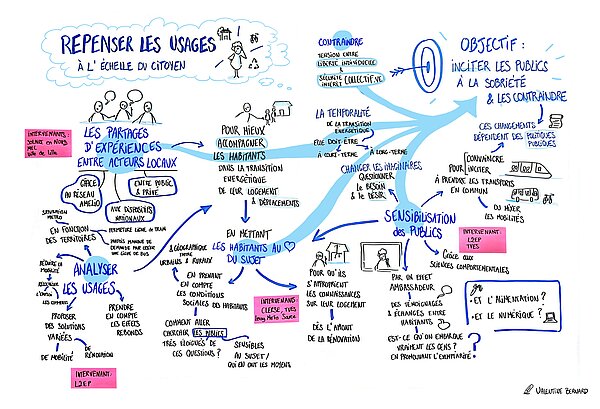 REPENSER LES USAGES
À L'ÉCHELLE DU CITOYEN
CONTRAINDRE
TENSION ENTRE
LIBERTÉ INDIVIDUELLE
&
SÉCURITÉ
INTÉRÊT COLLECTIF.VE
OBJECTIF :
INCITER LES PUBLICS
À LA SOBRIÉTÉ
& LES CONTRAINDRE
INTERVENANTS :
VILLE DE LILLE
LES PARTAGES
D'EXPÉRIENCES
ENTRE ACTEURS LOCAUX
GRÂCE
AU RÉSEAU
AMELIO
ENTRE PUBLIC
& PRIVÉ
AUX DISPOSITIFS
NATIONAUX
POUR MIEUX
ACCOMPAGNER
LES HABITANTS
DANS LA TRANSITION
ÉNERGÉTIQUE
DE LEUR LOGEMENT
& DÉPLACEMENTS
LA TEMPORALITÉ
DE LA TRANSITION
ÉNERGÉTIQUE
ELLE DOIT-ÊTRE
À COURT-TERME
À LONG-TERME
CHANGER LES IMAGINAIRES
QUESTIONNER
LE BESOIN
& LE DÉSIR
CES CHANGEMENTS
DÉPENDENT DES POLITIQUES
PUBLIQUES
CONVAINCRE
POUR INCITER
À PRENDRE LES TRANSPORTS
EN COMMUN
OU MIXER
LES MOBILITÉS
SENSIBILISATION
DES PUBLICS
INTERVENANT :
L2EP
TVES
GRÂCE AUX
SCIENCES COMPORTEMENTALES
EN FONCTION
DES TERRITOIRES
ANALYSER
LES USAGES
RÉDUIRE LA
MOBILITÉ
PROPOSER
DES SOLUTIONS
VARIÉES
DE MOBILITÉ
DE RÉNOVATION
PRENDRE
EN COMPTE
LES EFFETS
REBONDS
INTERVENANT :
L2EP
EN METTANT
LES HABITANTS AU
DU SUJET
& GÉOGRAPHIQUE
ENTRE
URBAINS & RURAUX
EN PRENANT
EN COMPTE
LES CONDITIONS
SOCIALES DES HABITANTS
COMMENT ALLER
CHERCHER LES PUBLICS
TRÈS ÉLOIGNÉS DE
CES QUESTIONS ?
SENSIBLES
AU SUJET /
QUI EN ONT LES MOYENS
INTERVENANT :
CLERSE, TVES
POUR QU'ILS
S'APPROPRIENT
LES CONNAISSANCES
SUR LEUR LOGEMENT
DÈS L'AMONT
DE LA RÉNOVATION
PAR UN EFFET
AMBASSADEUR
DES TÉMOIGNAGES
& ÉCHANGES ENTRE
HABITANTS
EST-CE QU'ON EMBARQUE
VRAIMENT LES GENS ?
EN PROMOUVANT L'EXEMPLARITÉ.
• ET L'ALIMENTATION ?
• ET LE NUMÉRIQUE ?
VALENTINE BERNARD